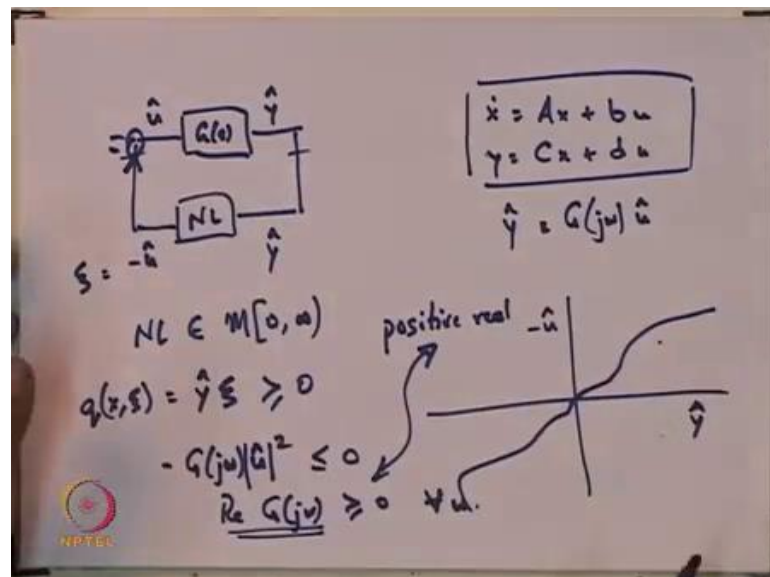 û
ŷ
G(s)
NL
ξ = -û
ŷ
ẋ = Ax + bu
y = Cx + du
ŷ = G(jω) û
NL ∈ M[0, ∞)
positive real
-û
ŷ
q(x,ξ) = ŷ ξ ≥ 0
- G(jω)|û|² ≤ 0
Re G(jω) ≥ 0 ∀ω.
NPTEL